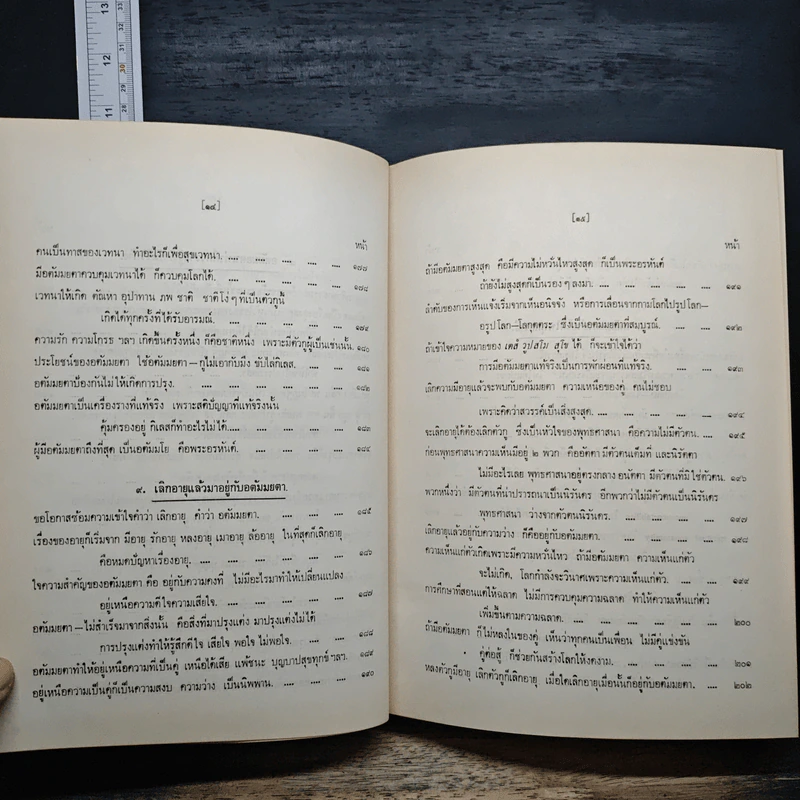 13
12
11
33
32
31
30
29
28
[๑๔]
หน้า
คนเป็นทาสของเวทนา ทำอะไรก็เพื่อสุขเวทนา. .... .... .... .... ๑๗๗
มีอตัมมยตาควบคุมเวทนาได้ ก็ควบคุมโลกได้. .... .... .... .... ๑๗๘
เวทนาให้เกิด ตัณหา อุปาทาน ภพ ชาติ ชาติโง่ ๆ ที่เป็นตัวกูนี้
เกิดได้ทุกครั้งที่ได้รับอารมณ์. .... .... .... .... .... ๑๗๙
ความรัก ความโกรธ ฯลฯ เกิดขึ้นครั้งหนึ่ง ก็คือชาติหนึ่ง เพราะมีตัวกูผู้เป็นเช่นนั้น. ๑๘๐
ประโยชน์ของอตัมมยตา ใช้อตัมมยตา—กูไม่เอากับมึง ขับไล่กิเลส. .... .... ๑๘๑
อตัมมยตาป้องกันไม่ให้เกิดการปรุง. .... .... .... .... .... ๑๘๒
อตัมมยตาเป็นเครื่องรางที่แท้จริง เพราะสติปัญญาที่แท้จริงนั้น
คุ้มครองอยู่ กิเลสก็ทำอะไรไม่ได้. .... .... .... .... ๑๘๓
ผู้มีอตัมมยตาถึงที่สุด เป็นอตัมมโย คือพระอรหันต์. .... .... .... .... ๑๘๔
๙. เลิกอายุแล้วมาอยู่กับอตัมมยตา.
ขอโอกาสซ้อมความเข้าใจคำว่า เลิกอายุ คำว่า อตัมมยตา. .... .... .... ๑๘๕
เรื่องของอายุก็เริ่มจาก มีอายุ รักอายุ หลงอายุ เมาอายุ ล้ออายุ ในที่สุดก็เลิกอายุ
คือหมดปัญหาเรื่องอายุ. .... .... .... .... .... ๑๘๖
ใจความสำคัญของอตัมมยตา คือ อยู่กับความคงที่ ไม่มีอะไรมาทำให้เปลี่ยนแปลง
อยู่เหนือความดีใจความเสียใจ. .... .... .... .... ๑๘๗
อตัมมยตา—ไม่สำเร็จมาจากสิ่งนั้น คือสิ่งที่มาปรุงแต่ง มาปรุงแต่งไม่ได้
การปรุงแต่งทำให้รู้สึกดีใจ เสียใจ พอใจ ไม่พอใจ. .... .... .... ๑๘๘
อตัมมยตาทำให้อยู่เหนือความที่เป็นคู่ เหนือได้เสีย แพ้ชนะ บุญบาปสุขทุกข์ ฯลฯ. ๑๘๙
อยู่เหนือความเป็นคู่ก็เป็นความสงบ ความว่าง เป็นนิพพาน. .... .... .... ๑๙๐
[๑๕]
หน้า
ถ้ามีอตัมมยตาสูงสุด คือมีความไม่หวั่นไหวสูงสุด ก็เป็นพระอรหันต์
ถ้ายังไม่สูงสุดก็เป็นรอง ๆ ลงมา. .... .... .... .... ๑๙๑
ลำดับของการเห็นแจ้งเริ่มจากเห็นอนิจจัง หรือการเลื่อนจากกามโลกไปรูปโลก—
อรูปโลก—โลกุตตระ ซึ่งเป็นอตัมมยตาที่สมบูรณ์. .... .... .... ๑๙๒
ถ้าเข้าใจความหมายของ เตสํ วูปสโม สุโข ได้ ก็จะเข้าใจได้ว่า
การมีอตัมมยตาแท้จริงเป็นการพักผ่อนที่แท้จริง. .... .... .... ๑๙๓
เลิกความมีอายุแล้วจะพบกับอตัมมยตา ความเหนือของคู่ คนไม่ชอบ
เพราะคิดว่าสวรรค์เป็นสิ่งสูงสุด. .... .... .... .... ๑๙๔
จะเลิกอายุได้ต้องเลิกตัวกู ซึ่งเป็นหัวใจของพุทธศาสนา คือความไม่มีตัวตน. .... ๑๙๕
ก่อนพุทธศาสนาความเห็นมีอยู่ ๒ พวก คืออัตตา มีตัวตนเต็มที่ และนิรัตตา
ไม่มีอะไรเลย พุทธศาสนาอยู่ตรงกลาง อนัตตา มีตัวตนที่มิใช่ตัวตน. ๑๙๖
พวกหนึ่งว่า มีตัวตนที่น่าปรารถนาเป็นนิรันดร อีกพวกว่าไม่มีตัวตนเป็นนิรันดร
พุทธศาสนา ว่างจากตัวตนนิรันดร. .... .... .... .... ๑๙๗
เลิกอายุแล้วอยู่กับความว่าง ก็คืออยู่กับอตัมมยตา. .... .... .... .... ๑๙๘
ความเห็นแก่ตัวเกิดเพราะมีความหวั่นไหว ถ้ามีอตัมมยตา ความเห็นแก่ตัว
จะไม่เกิด. โลกกำลังจะวินาศเพราะความเห็นแก่ตัว. .... .... .... ๑๙๙
การศึกษาที่สอนแต่ให้ฉลาด ไม่มีการควบคุมความฉลาด ทำให้ความเห็นแก่ตัว
เพิ่มขึ้นตามความฉลาด. .... .... .... .... .... ๒๐๐
ถ้ามีอตัมมยตา ก็ไม่หลงในของคู่ เห็นว่าทุกคนเป็นเพื่อน ไม่มีคู่แข่งขัน
คู่ต่อสู้ ก็ช่วยกันสร้างโลกให้งดงาม. .... .... .... .... ๒๐๑
หลงตัวกูมีอายุ เลิกตัวกูก็เลิกอายุ เมื่อใดเลิกอายุเมื่อนั้นก็อยู่กับอตัมมยตา. .... ๒๐๒